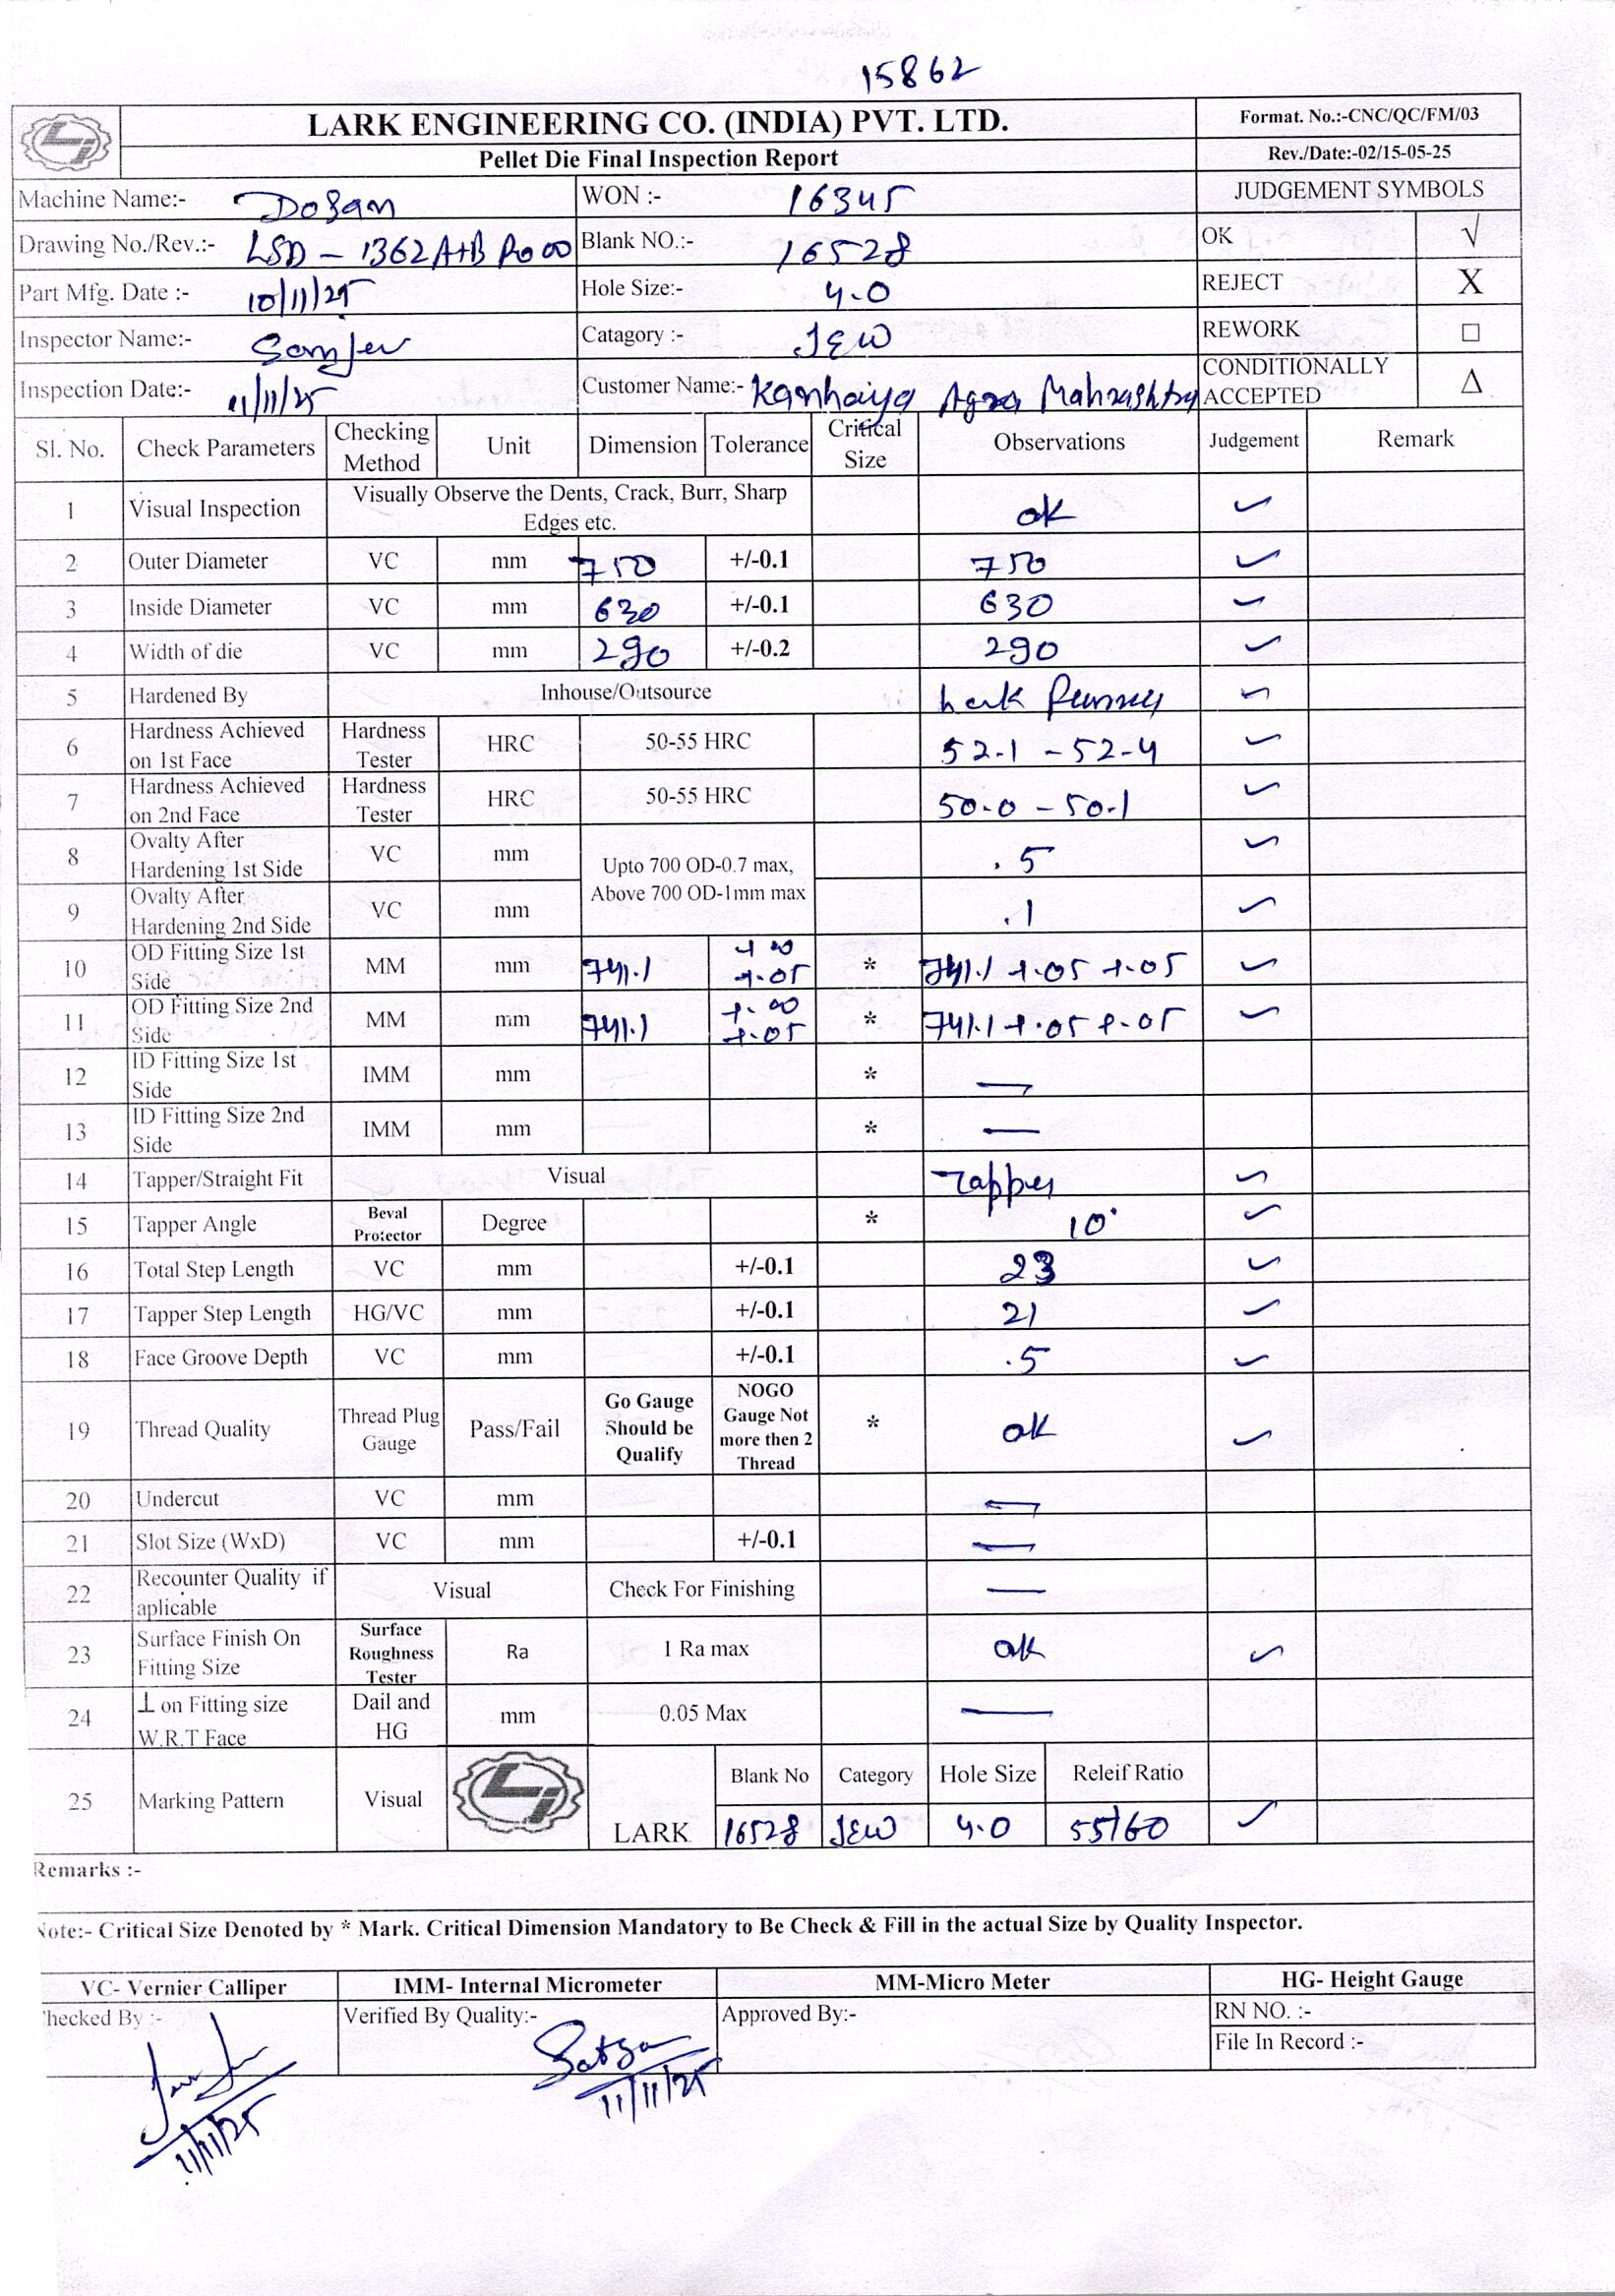 15862
LARK ENGINEERING CO. (INDIA) PVT. LTD. Format. No.:-CNC/QC/FM/03
Pellet Die Final Inspection Report Rev./Date:-02/15-05-25
Machine Name:- Dosan WON :- 16345 JUDGEMENT SYMBOLS
Drawing No./Rev.:- LSD - 1362 A+B Ro 00 Blank NO.:- 16528 OK √
Part Mfg. Date :- 10/11/25 Hole Size:- 4.0 REJECT X
Inspector Name:- Catagory :- JEW REWORK □
Inspection Date:- 11/11/25 Customer Name:- Kanhaiya Agro Mahrashtra CONDITIONALLY ACCEPTED Δ
Sl. No. Check Parameters Checking Method Unit Dimension Tolerance Critical Size Observations Judgement Remark
1 Visual Inspection Visually Observe the Dents, Crack, Burr, Sharp Edges etc. ok ✓
2 Outer Diameter VC mm 750 +/-0.1 750 ✓
3 Inside Diameter VC mm 630 +/-0.1 630 ✓
4 Width of die VC mm 290 +/-0.2 290 ✓
5 Hardened By Inhouse/Outsource Lark ✓
6 Hardness Achieved on 1st Face Hardness Tester HRC 50-55 HRC 52.1 - 52.4 ✓
7 Hardness Achieved on 2nd Face Hardness Tester HRC 50-55 HRC 50.0 - 50.1 ✓
8 Ovalty After Hardening 1st Side VC mm Upto 700 OD-0.7 max, Above 700 OD-1mm max .5 ✓
9 Ovalty After Hardening 2nd Side VC mm .1 ✓
10 OD Fitting Size 1st Side MM mm 741.1 +.00 +.05 * 741.1 +.05 +.05 ✓
11 OD Fitting Size 2nd Side MM mm 741.1 +.00 +.05 * 741.1 +.05 +.05 ✓
12 ID Fitting Size 1st Side IMM mm * —
13 ID Fitting Size 2nd Side IMM mm * —
14 Tapper/Straight Fit Visual Tapper ✓
15 Tapper Angle Beval Protector Degree * 10° ✓
16 Total Step Length VC mm +/-0.1 23 ✓
17 Tapper Step Length HG/VC mm +/-0.1 21 ✓
18 Face Groove Depth VC mm +/-0.1 .5 ✓
19 Thread Quality Thread Plug Gauge Pass/Fail Go Gauge Should be Qualify NOGO Gauge Not more then 2 Thread * ok ✓
20 Undercut VC mm —
21 Slot Size (WxD) VC mm +/-0.1 —
22 Recounter Quality if aplicable Visual Check For Finishing —
23 Surface Finish On Fitting Size Surface Roughness Tester Ra 1 Ra max ok ✓
24 ⊥ on Fitting size W.R.T Face Dail and HG mm 0.05 Max —
25 Marking Pattern Visual LARK Blank No Category Hole Size Releif Ratio
16528 JEW 4.0 55/60 ✓
Remarks :-
Note:- Critical Size Denoted by * Mark. Critical Dimension Mandatory to Be Check & Fill in the actual Size by Quality Inspector.
VC- Vernier Calliper IMM- Internal Micrometer MM-Micro Meter HG- Height Gauge
Checked By :- Verified By Quality:- Approved By:- RN NO. :-
File In Record :-
11/11/25 11/11/25